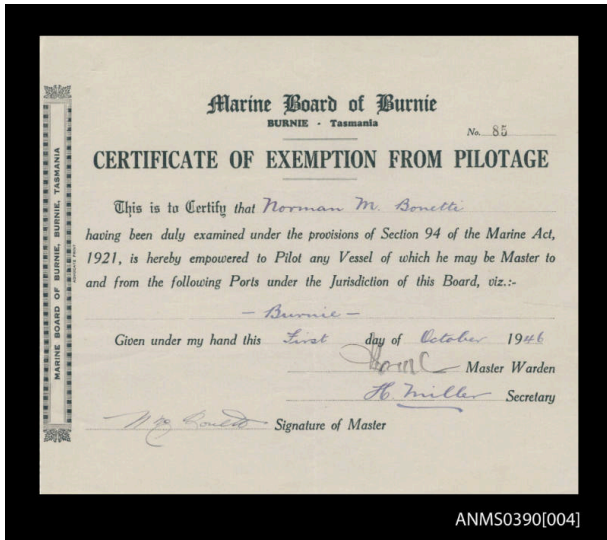 Marine Board of Burnie
BURNIE - Tasmania
No. 85
CERTIFICATE OF EXEMPTION FROM PILOTAGE
This is to Certify that Norman M. Bonetti
having been duly examined under the provisions of Section 94 of the Marine Act,
1921, is hereby empowered to Pilot any Vessel of which he may be Master to
and from the following Ports under the Jurisdiction of this Board, viz.:-
- Burnie -
Given under my hand this First day of October 1946
Master Warden
H. Miller Secretary
Signature of Master
MARINE BOARD OF BURNIE, BURNIE, TASMANIA
ANMS0390[004]